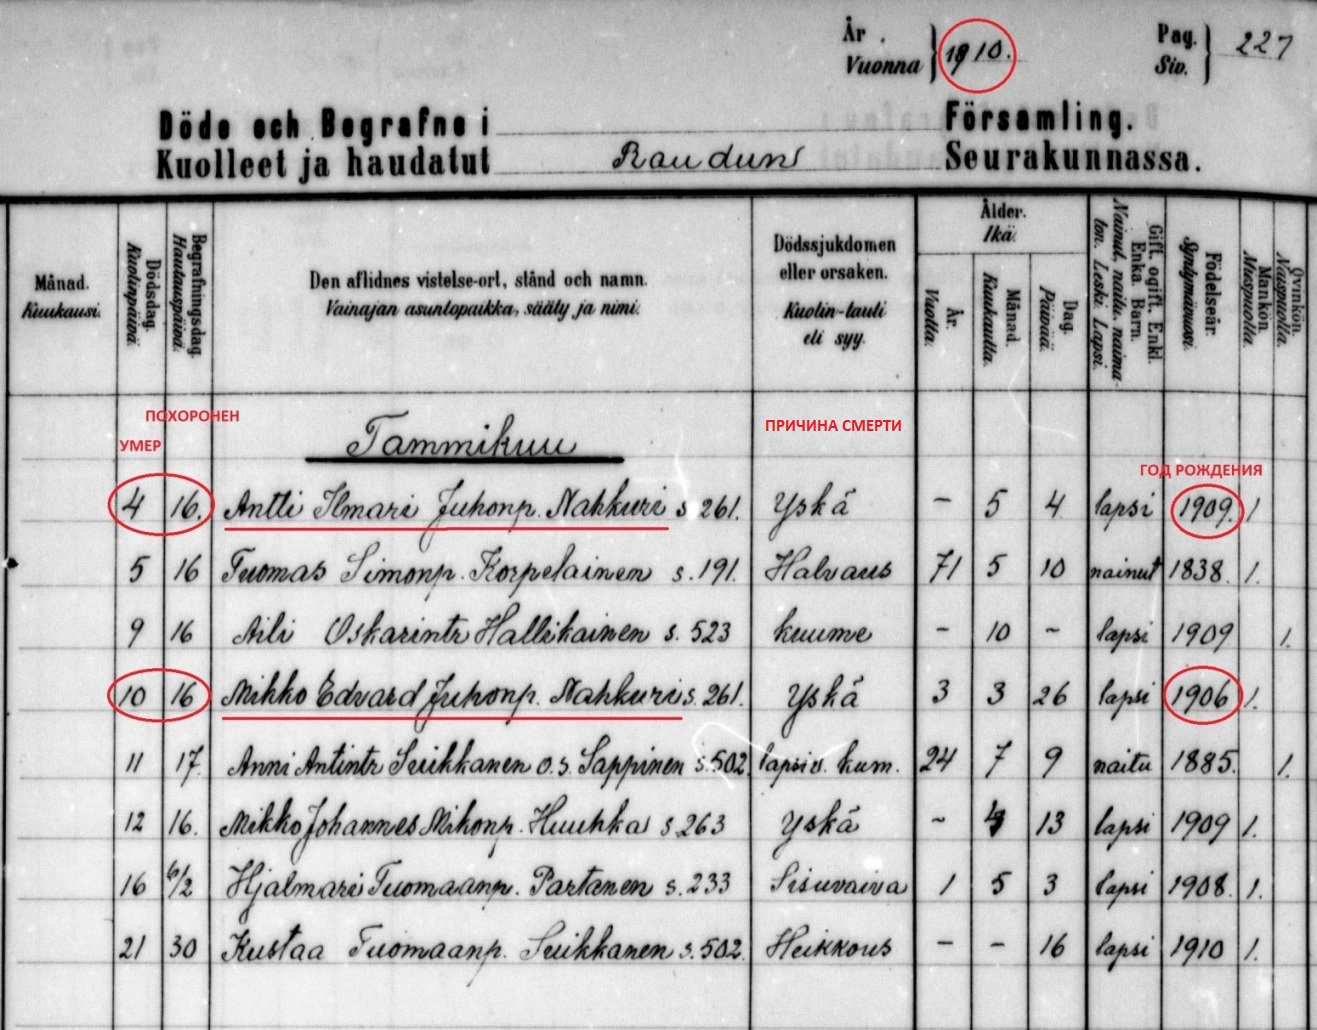 År. Vuonna } 1910. Pag. Siv. } 227
Döde och Begrafne i Församling.
Kuolleet ja haudatut Raudun Seurakunnassa.
Månad. Kuukausi.
Dödsdag. Kuolinpäivä.
Begrafningsdag. Hautauspäivä.
Den aflidnes vistelse-ort, stånd och namn.
Vainajan asuntopaikka, sääty ja nimi.
Dödssjukdomen eller orsaken.
Kuolin-tauti eli syy.
Ålder. Ikä.
År. Vuotta.
Månad. Kuukautta.
Dag. Päivää.
Gift, ogift, Enkl. Enka. Barn.
Nainut, naitu, naima- ton. Leski. Lapsi.
Födelseår. Syntymävuosi.
Mankön. Miespuolta.
Qvinkön. Naispuolta.
ПОХОРОНЕН
УМЕР
Tammikuu
ПРИЧИНА СМЕРТИ
ГОД РОЖДЕНИЯ
4 16. Antti Ilmari Juhonp. Nahkuri s 261. Yskä – 5 4 lapsi 1909. 1
5 16 Tuomas Simonp. Korpelainen s. 191. Halvaus 71 5 10 nainut 1838. 1.
9 16 Aili Oskarintr Hallikainen s. 523 kuume – 10 – lapsi 1909 1.
10 16 Mikko Edvard Juhonp. Nahkuri s. 261. Yskä 3 3 26 lapsi 1906 1.
11 17. Anni Antintr Seikkanen o.s. Sappinen s. 502. lapsiv. kum. 24 7 9 naitu 1885. 1.
12 16. Mikko Johannes Mikonp. Huuhka s 263 Yskä – 4 13 lapsi 1909 1.
16 6/2 Hjalmari Tuomaanp. Partanen s. 233 Sisuvaiva 1 5 3 lapsi 1908. 1.
21 30 Kustaa Tuomaanp. Seikkanen s. 502. Heikkous – – 16 lapsi 1910 1.